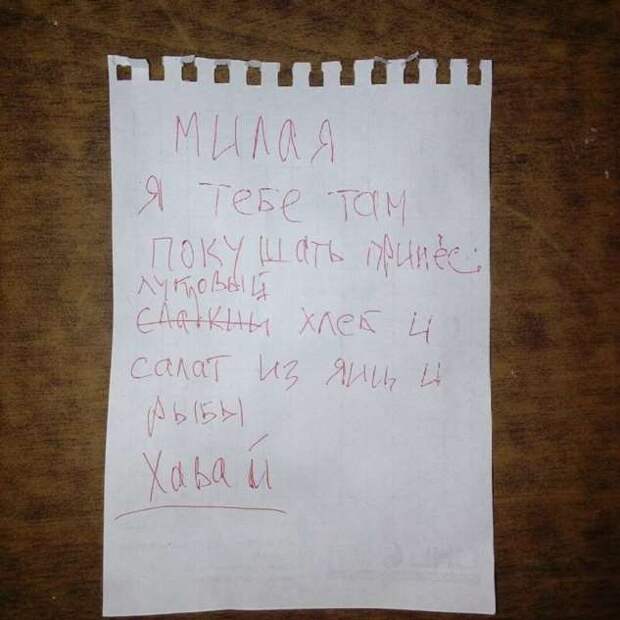 МИЛАЯ
Я ТЕБЕ ТАМ
ПОКУШАТЬ ПРИНЁС:
ЛУКОВЫЙ
ХЛЕБ И
САЛАТ ИЗ ЯИЦ И
РЫБЫ
ХаваЙ